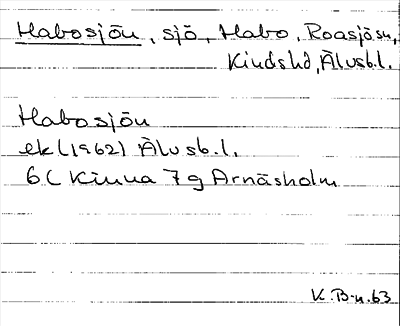 Habosjön, sjö, Habo, Roasjö sn,
Kindshd, Älvsb.l.
Habosjön
ek (1962) Älvsb.l.
6C Kinna 7g Arnäsholm
K.B-n.63